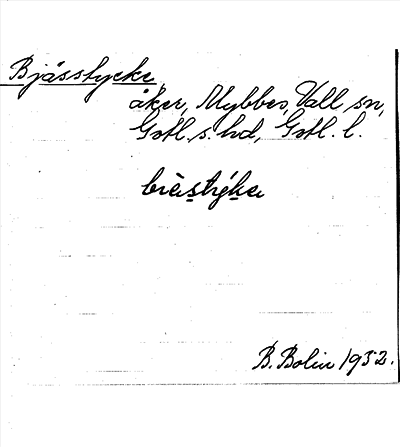 Bjässtycke
åker, Mybbes, Vall sn,
Gotl. s. hd, Gotl. l.
B. Bolin 1932.